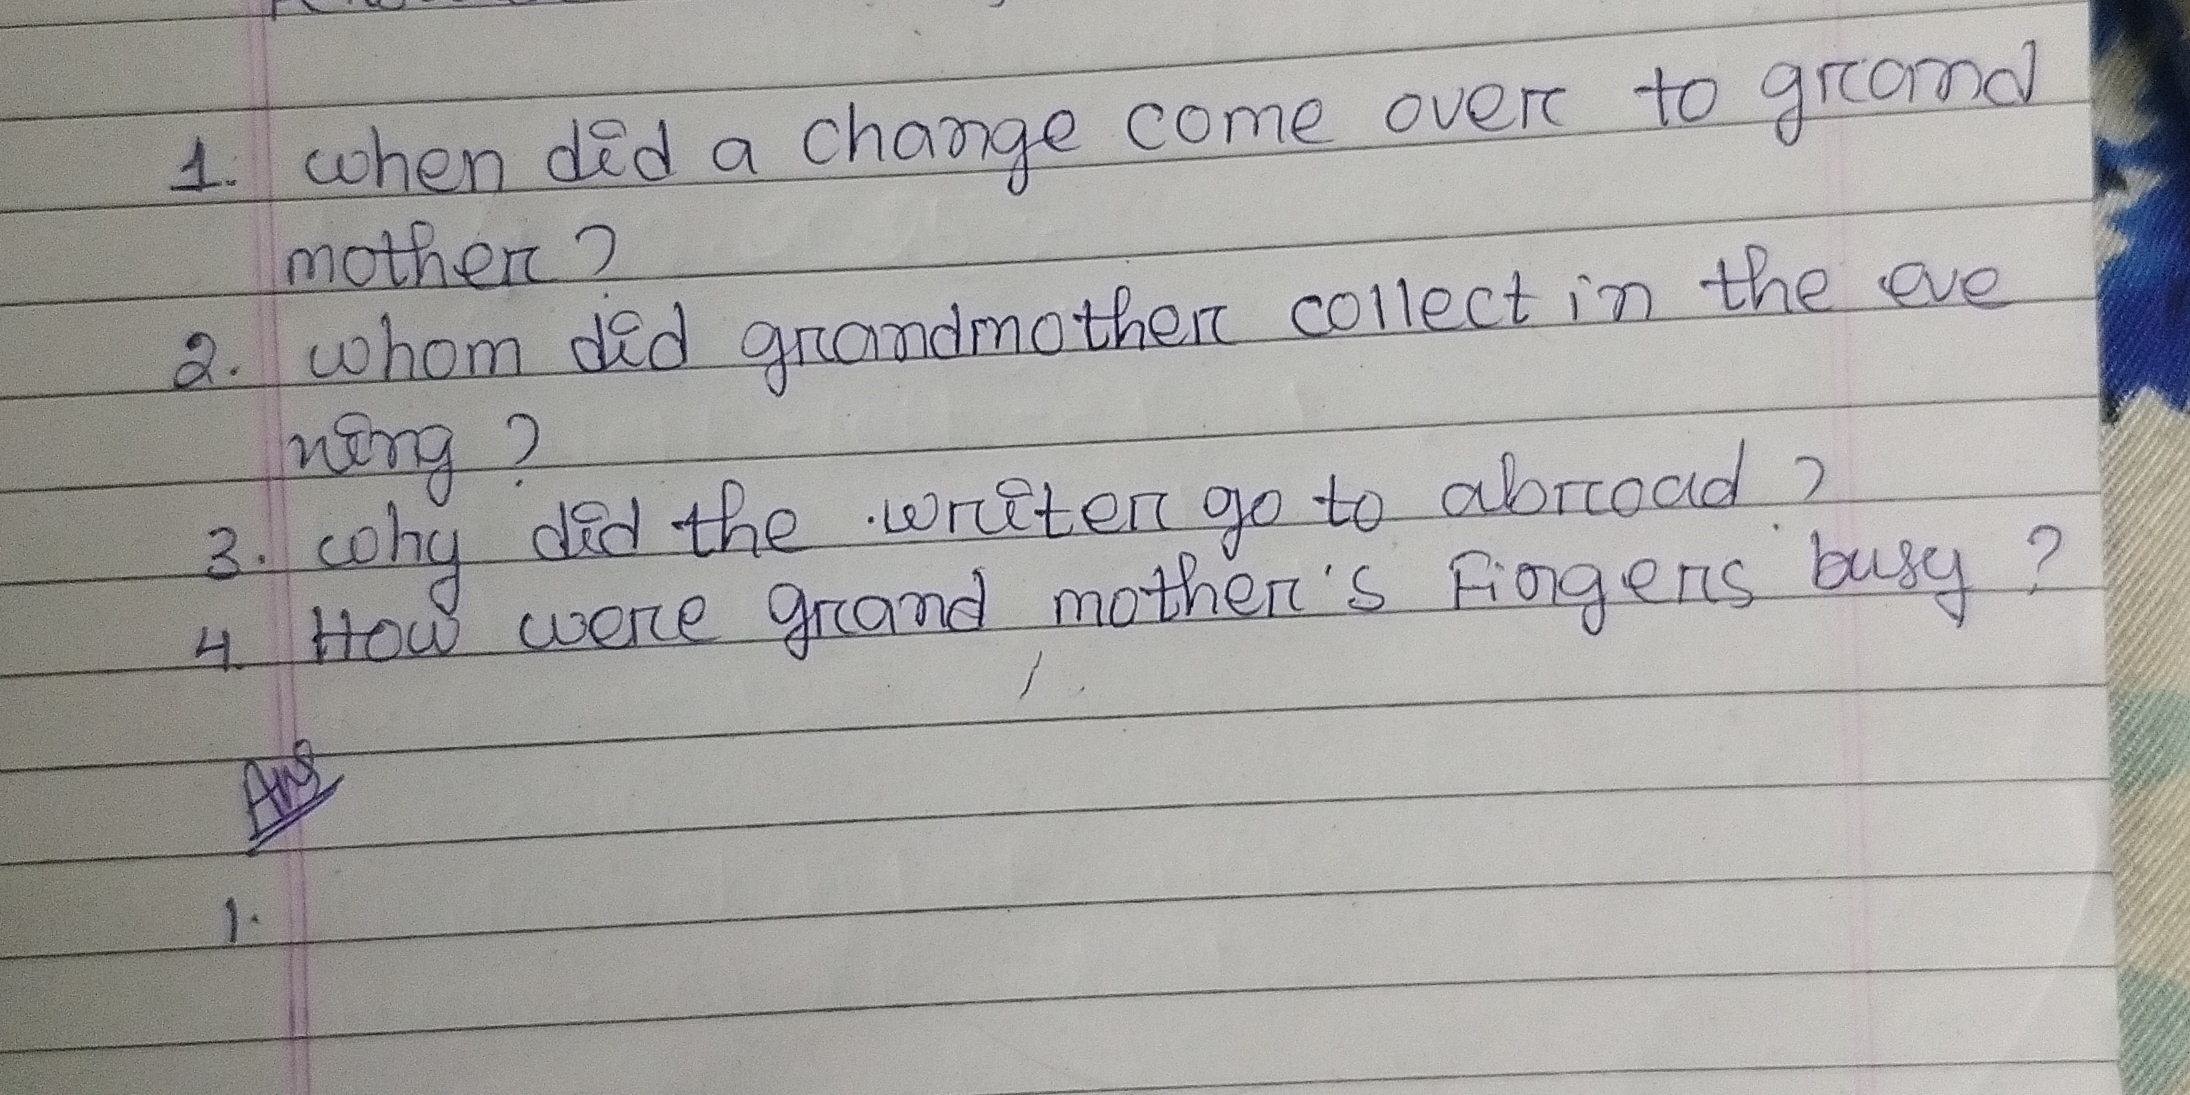 1. when did a change come over to grand
mother?
2. whom did grandmother collect in the eve
ning?
3. why did the writer go to abroad?
4. How were grand mother's Fingers busy?
Ans
1.